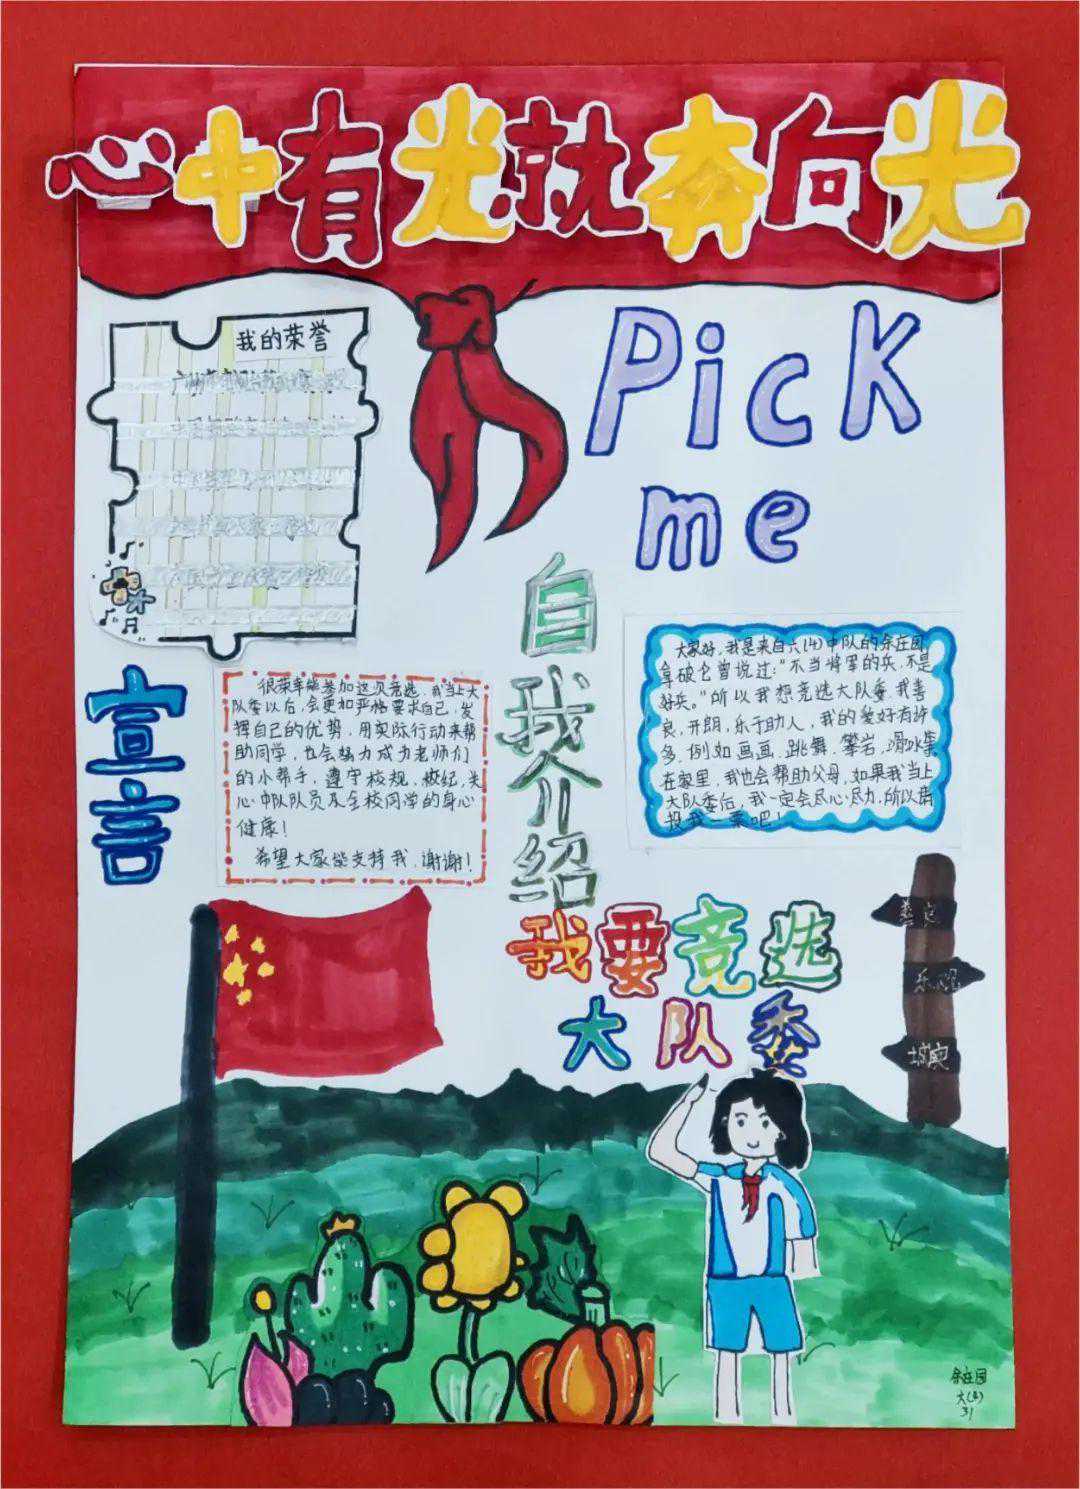 心中有光就奔向光
Pick
me
我的荣誉
自我介绍
大家好，我是来自六(4)中队的余庄园
拿破仑曾说过："不当将军的兵，不是
好兵。"所以我想竞选大队委，我善
良，开朗，乐于助人，我的爱好有许
多，例如画画，跳舞，攀岩，滑冰等
在家里，我也会帮助父母，如果我当上
大队委后，我一定会尽心尽力，所以请
投我一票吧！
宣言
很荣幸能参加这次竞选，我当上大
队委以后，会更加严格要求自己，发
挥自己的优势，用实际行动来帮
助同学，也会努力成为老师们
的小帮手，遵守校规，校纪，关
心中队队员及全校同学的身心
健康！
希望大家能支持我，谢谢！
我要竞选
大队委
乐观
余庄园
六(4)
31